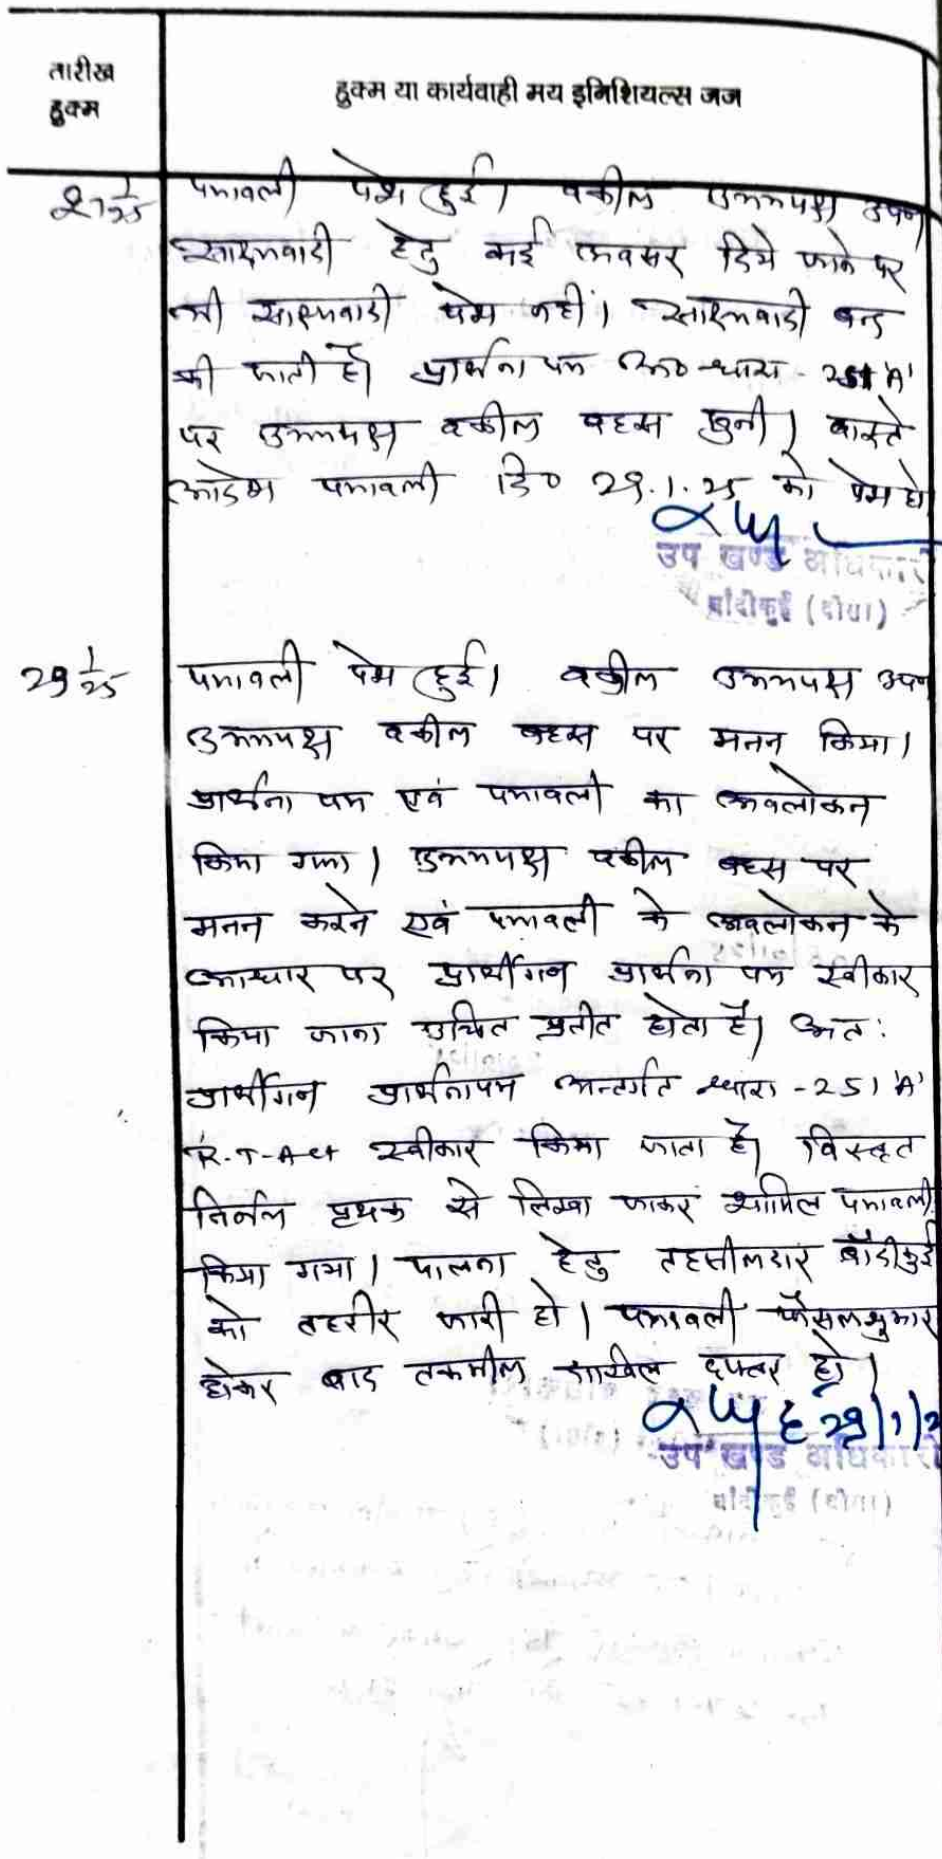 तारीख
हुक्म
हुक्म या कार्यवाही मय इनिशियल्स जज
पत्रावली पेश हुई। वकील उभयपक्ष उप०
साक्ष्यवादी हेतु कई अवसर दिये जाने पर
भी साक्ष्यवादी पेश नहीं। साक्ष्यवादी बन्द
की जाती है। प्रार्थना पत्र अ० धारा - 251 'A'
पर उभयपक्ष वकील बहस सुनी। वास्ते
आदेश पत्रावली दि० 29.1.25 को पेश हो
उप खण्ड अधिकारी
बांदीकुई (दौसा)
29 1/25
पत्रावली पेश हुई। वकील उभयपक्ष उप०
उभयपक्ष वकील बहस पर मनन किया।
प्रार्थना पत्र एवं पत्रावली का अवलोकन
किया गया। उभयपक्ष वकील बहस पर
मनन करने एवं पत्रावली के अवलोकन के
आधार पर प्रार्थीगन प्रार्थना पत्र स्वीकार
किया जाना उचित प्रतीत होता है। अत:
प्रार्थीगन प्रार्थनापत्र अन्तर्गत धारा - 251 'A'
R.T-Act स्वीकार किया जाता है। विस्तृत
निर्णय पृथक से लिखा जाकर शामिल पत्रावली
किया गया। पालना हेतु तहसीलदार बाँदीकुई
को तहरीर जारी हो। पत्रावली फैसलशुमार
होकर बाद तकमील दाखिल दफ्तर हो।
29/1/2
उप खण्ड अधिकारी
बांदीकुई (दौसा)